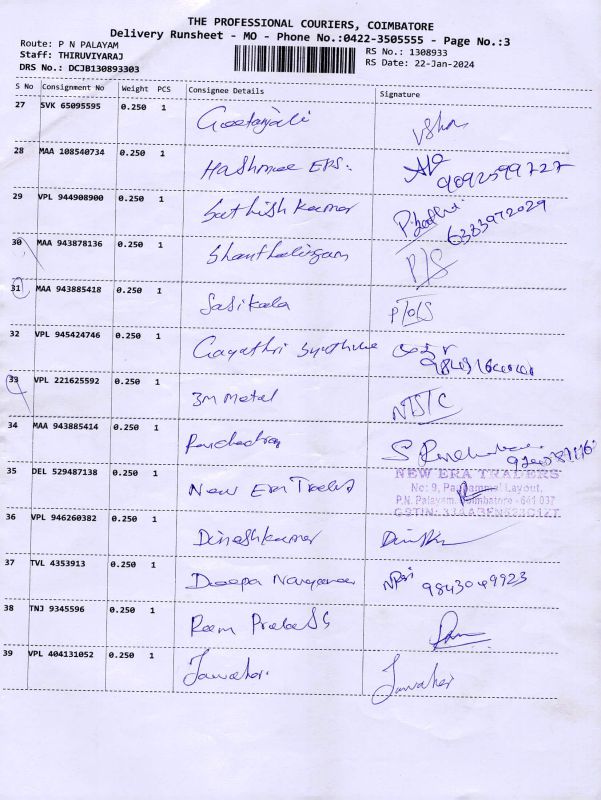 THE PROFESSIONAL COURIERS, COIMBATORE
Delivery Runsheet - MO - Phone No.:0422-3505555 - Page No.:3
Route: P N PALAYAM
RS No.: 1308933
Staff: THIRUVIYARAJ
RS Date: 22-Jan-2024
DRS No.: DCJB130893303
S No Consignment No Weight PCS Consignee Details Signature
27 SVK 65095595 0.250 1 Geetanjali Usha
28 MAA 108540734 0.250 1 Hashmee EPS.
9092599727
29 VPL 944908900 0.250 1 Sathish Kumar
6383972029
30 MAA 943878136 0.250 1 Shanthalingam P/S
31 MAA 943885418 0.250 1 Sasikala P/O/S
32 VPL 945424746 0.250 1 Gayathri
33 VPL 221625592 0.250 1 3M Metal NTS/C
34 MAA 943885414 0.250 1
35 DEL 529487138 0.250 1 New Era Traders
NEW ERA TRADERS
No: 9, Layout,
P.N. Palayam, Coimbatore - 641 037
36 VPL 946260382 0.250 1 Dineshkumar
37 TVL 4353913 0.250 1 Deepa Narayanan 9843049923
38 TNJ 9345596 0.250 1 Ram
39 VPL 404131052 0.250 1 Jawahar. Jawahar